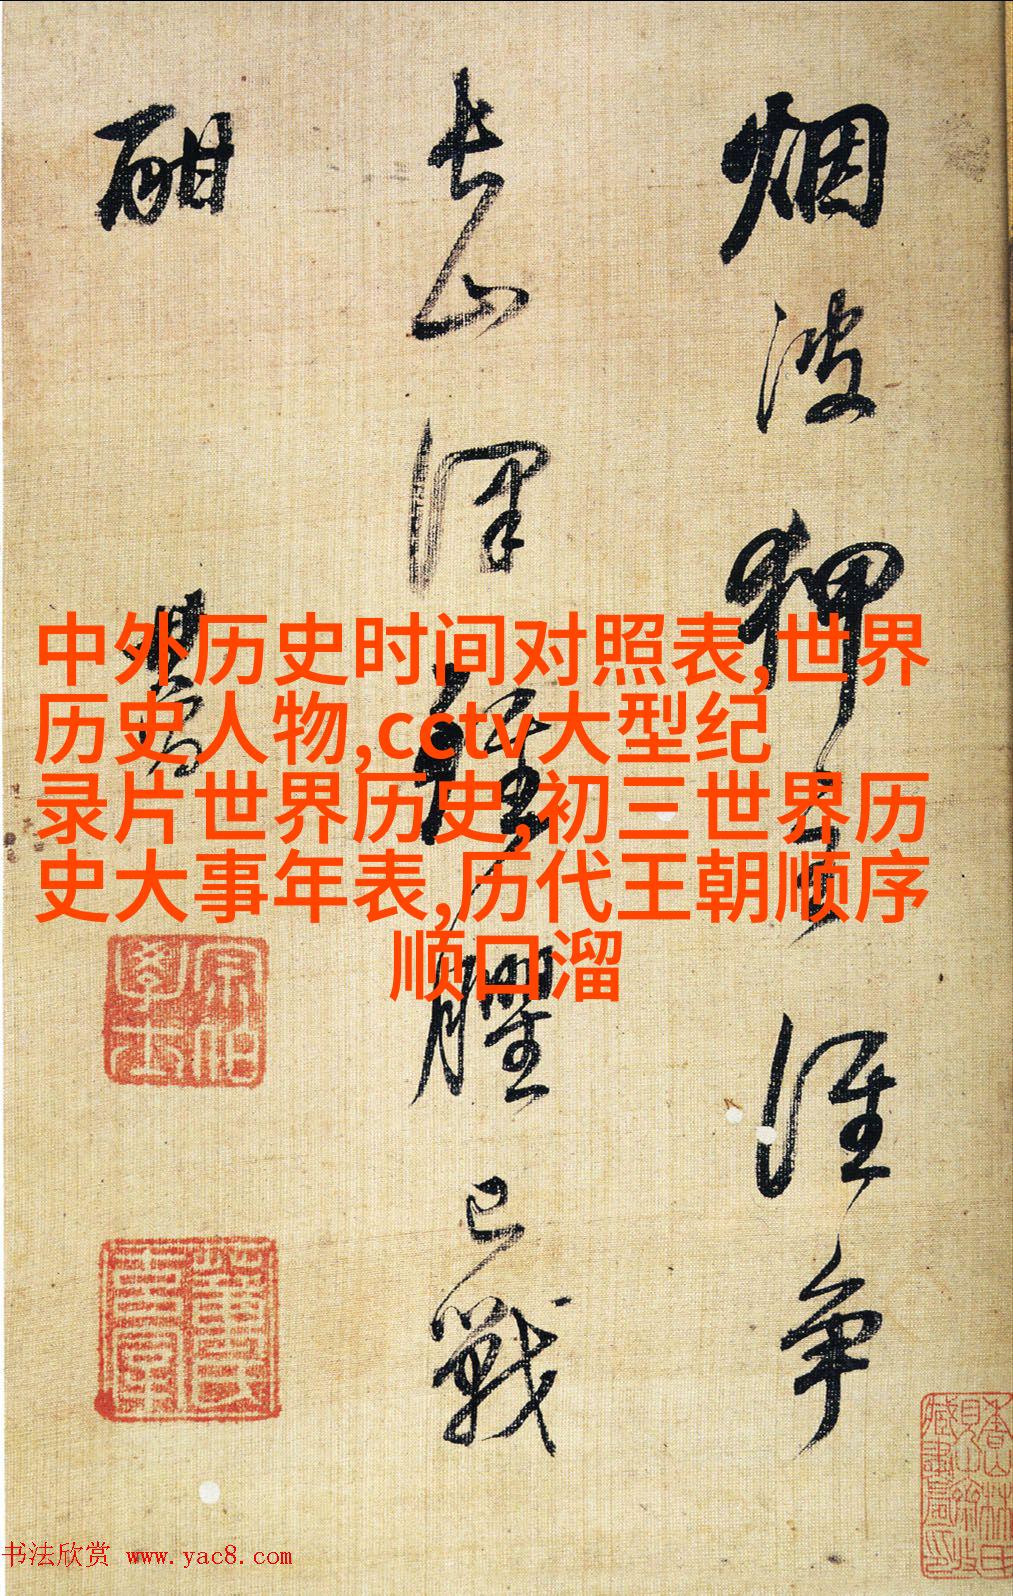 烟波狎主誰爭
長山澤臞已戰
酣
其昌
中外历史时间对照表,世界
历史人物,cctv大型纪
录片世界历史,初三世界历
史大事年表,历代王朝顺序
顺口溜
宗伯學士
书法欣赏 www.yac8.com